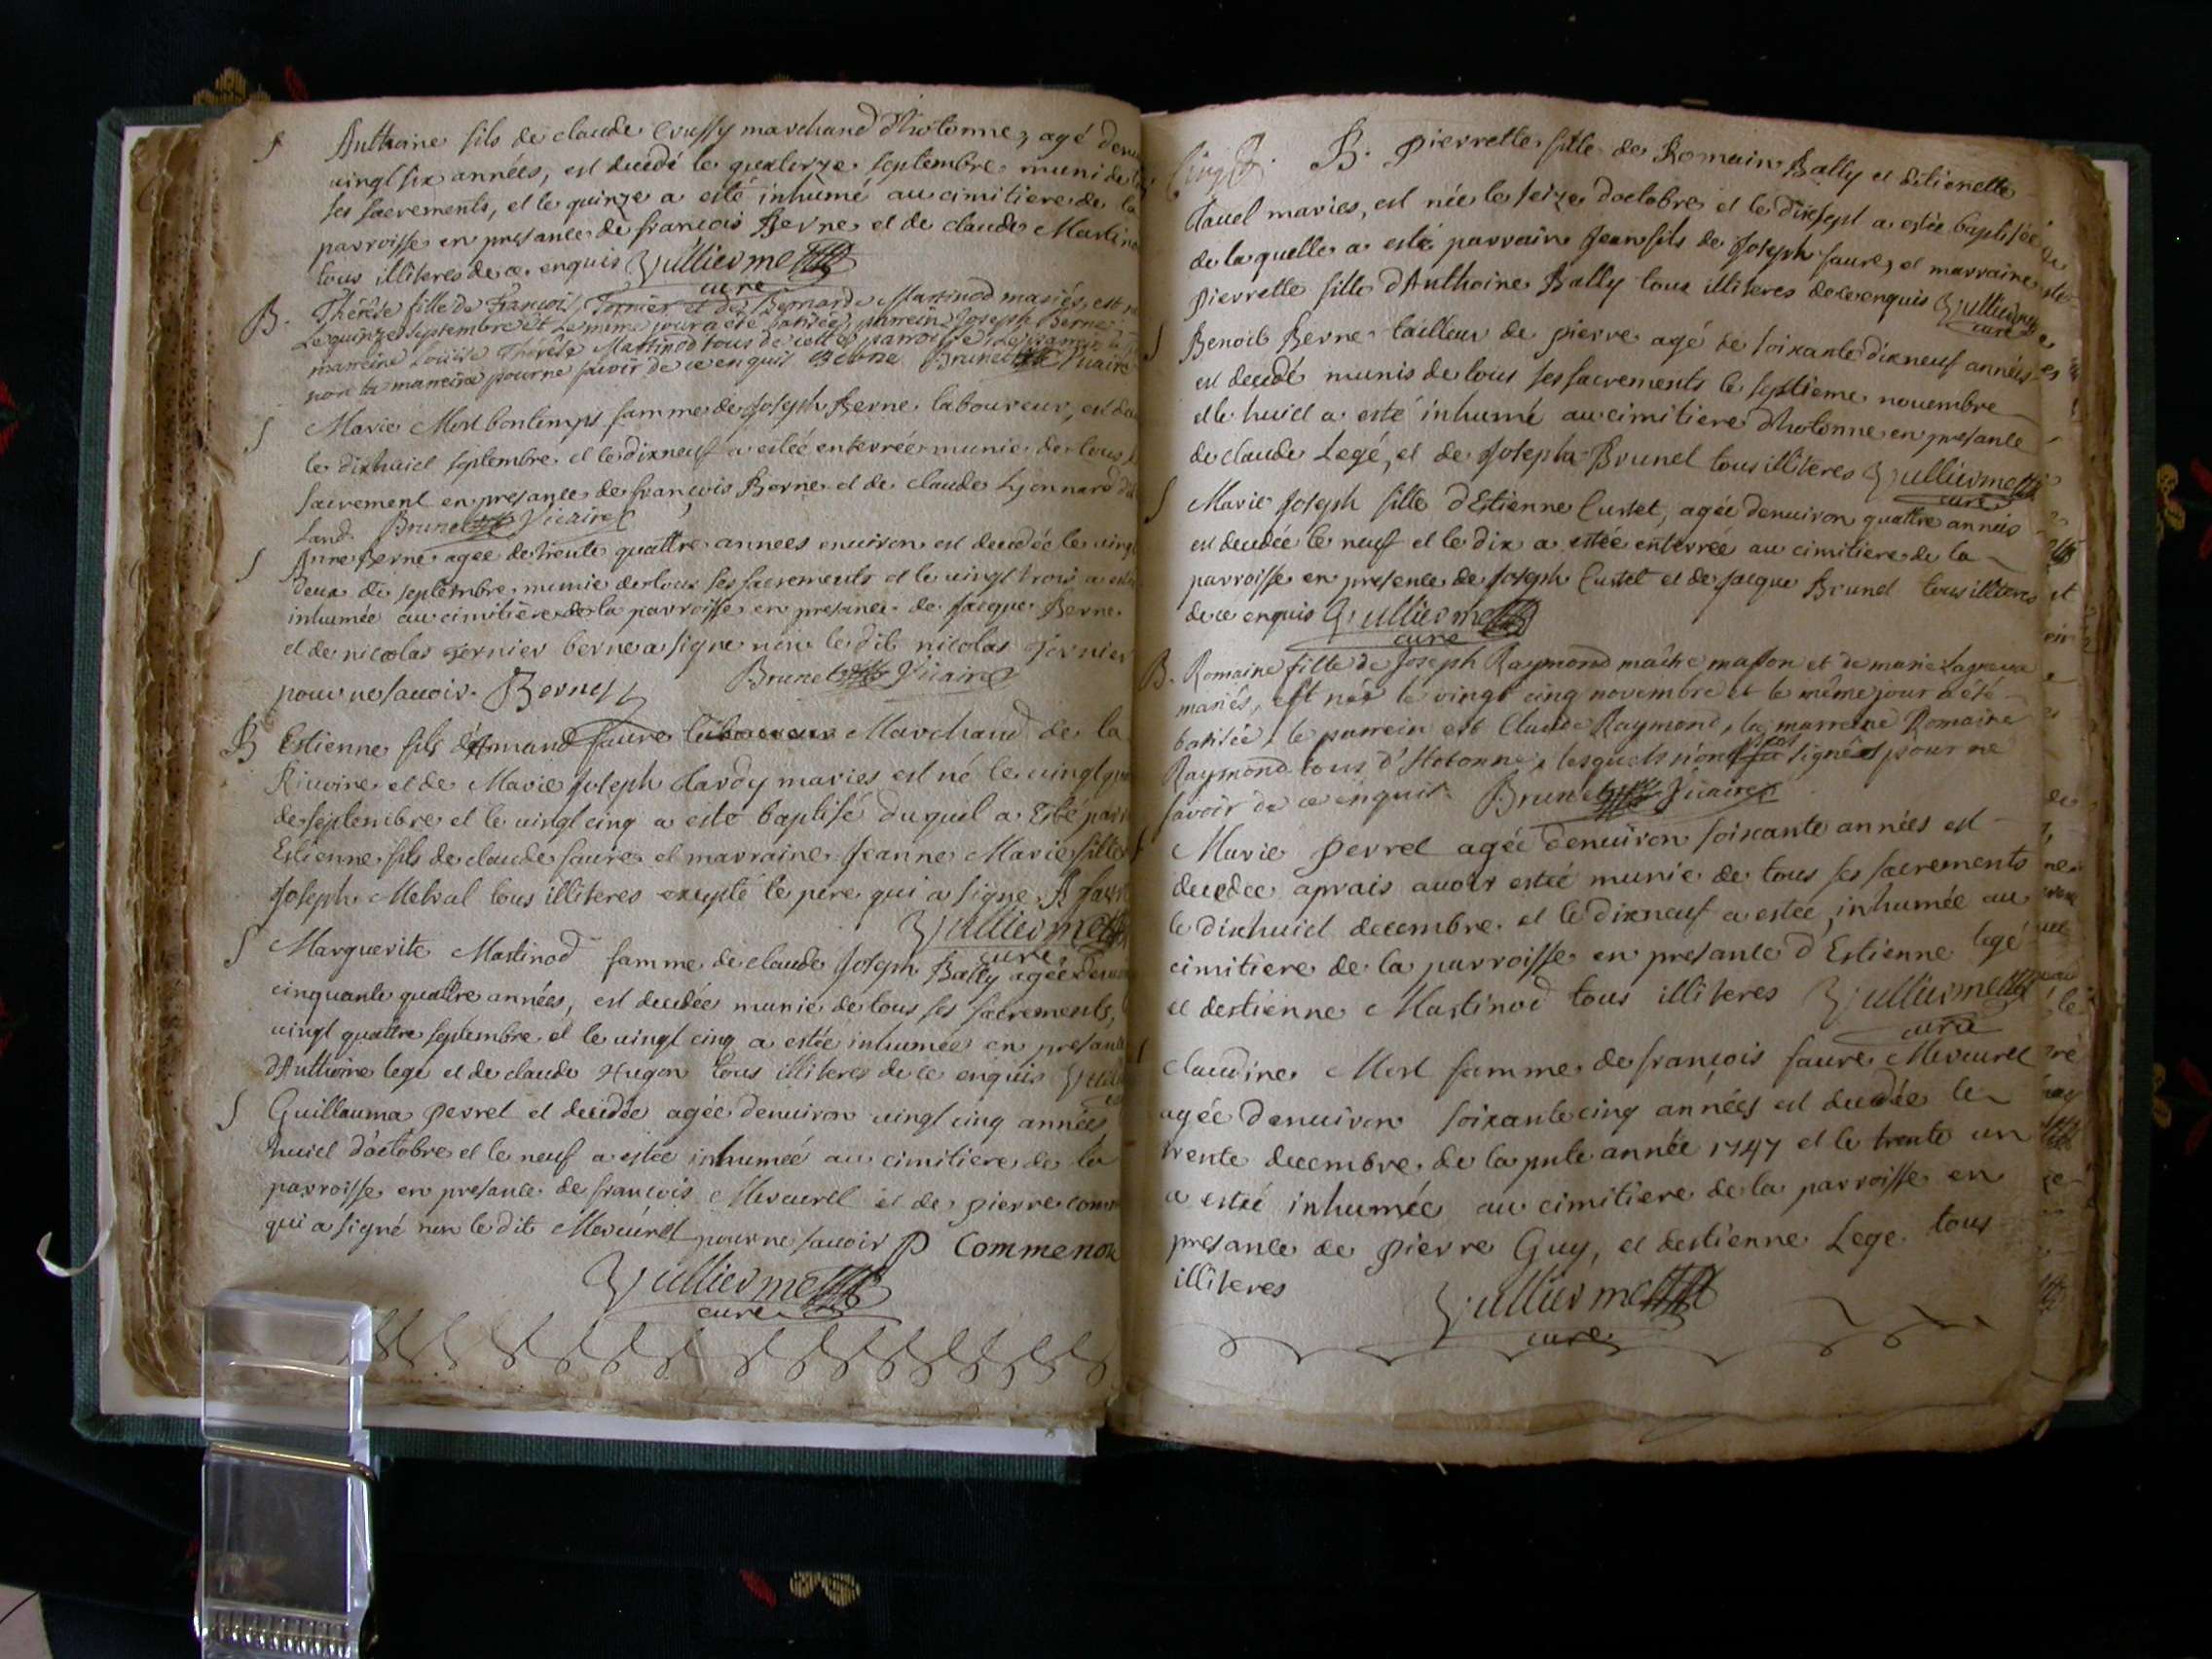 S Anthoine fils de claude Crussy marchand d'hotonne, agé denui
vingt six années, est decedé le quatorze septembre muni de
ses sacrements, et le quinze a esté inhumé au cimitiere de la
parroisse en presance de françois Berne et de claude Martino
tous illiteres de ce enquis Vulliermet
curé
B. Thérése fille de François Tornier et de Bernarde Martinod mariés, est
Le quinze septembre et Le même jour a été batisée, parrein Joseph Berne
marreine Thérése Martinod tous de cette parroisse
non la marreine pour ne savoir de ce enquis Berne Brunet Vicaire
S Marie Morl bontemps famme de Joseph Berne laboureur, est
le dixhuict septembre et le dixneuf a estée enterrée munie de tous
sacrement en presance de françois Berne et de claude Lyonnard
Land. Brunet Vicaire
S Anne Berne agée de trente quattre années enuiron est decedée le vingt
deux de septembre munie de tous ses sacrements et le vingt trois a esté
inhumée au cimitière de la parroisse en presance de Jacque Berne
et de nicolas Tornier berne a signé non le dit nicolas Tornier
pour ne sauoir. Berne Brunet Vicaire
B Estienne fils d'Armand faure laboureur Marchand de la
Riuoire et de Marie Joseph Tardy mariés est né le uingt
de septembre et le uingt cinq a esté baptisé duquel a Esté parr
Estienne fils de claude faure et marraine Jeanne Marie fille
Joseph Metral tous illiteres excepté le père qui a signé. A faure
Vulliermet
curé
S Marguerite Martinod famme de claude Joseph Bally agée denui
cinquante quattre années, est decedée munie de tous ses sacrements,
uingt quattre septembre et le uingt cinq a estée inhumée en presance
d'Anthoine legé et de claude Hugon tous illiteres de ce enquis
S Guillauma perret et decedée agée denuiron uingt cinq années
huict d'octobre et le neuf a estée inhumée au cimitiere de la
parroisse en presance de françois Mercuret et de pierre comm
qui a signé non le dit Mercuret pour ne sauoir P Commenou
Vulliermet
curé
B. Pierrette fille de Romain Bally et d'Etienette
Clauel mariés, est née le seize doctobre et le dixsept a estée baptisée
de laquelle a esté parrain Jean fils de Joseph faure, et marraine
pierrette fille d'Anthoine Bally tous illiteres de ce enquis Vulliermet
curé
S Benoit Berne tailleur de pierre agé de soixante dixneuf années
est decedé munis de tous ses sacrements le septieme nouembre
et le huict a esté inhumé au cimitiere d'hotonne en presance
de claude Legé, et de Joseph Brunet tous illiteres Vulliermet
curé
S Marie Joseph fille d'Estienne Curtet, agée denuiron quattre années
est decedée le neuf et le dix a estée enterrée au cimitiere de la
parroisse en presence de Joseph Curtet et de Jacque Brunet tous illiteres
de ce enquis Vulliermet
curé
B. Romaine fille de Joseph Raymond maître masson et de marie
mariés, est née le vingt cinq novembre et le même jour a été
batisée, le parrein est Claude Raymond, la marreine Romaine
Raymond tous d'Hotonne, lesquels n'ont signés pour ne
savoir de ce enquis. Brunet Vicaire
S Marie perret agée denuiron soixante années est
decedée aprais auoir estée munie de tous ses sacrements
le dixhuict decembre et le dixneuf a estée inhumée au
cimitiere de la parroisse en presance d'Estienne legé
et destienne Martinod tous illiteres Vulliermet
curé
S claudine Morl famme de françois faure Mercuret
agée denuiron soixante cinq années est decedée le
trente decembre de la pnte année 1747 et le trente un
a estée inhumée au cimitiere de la parroisse en
presance de pierre Guy, et destienne Lege tous
illiteres Vulliermet
curé